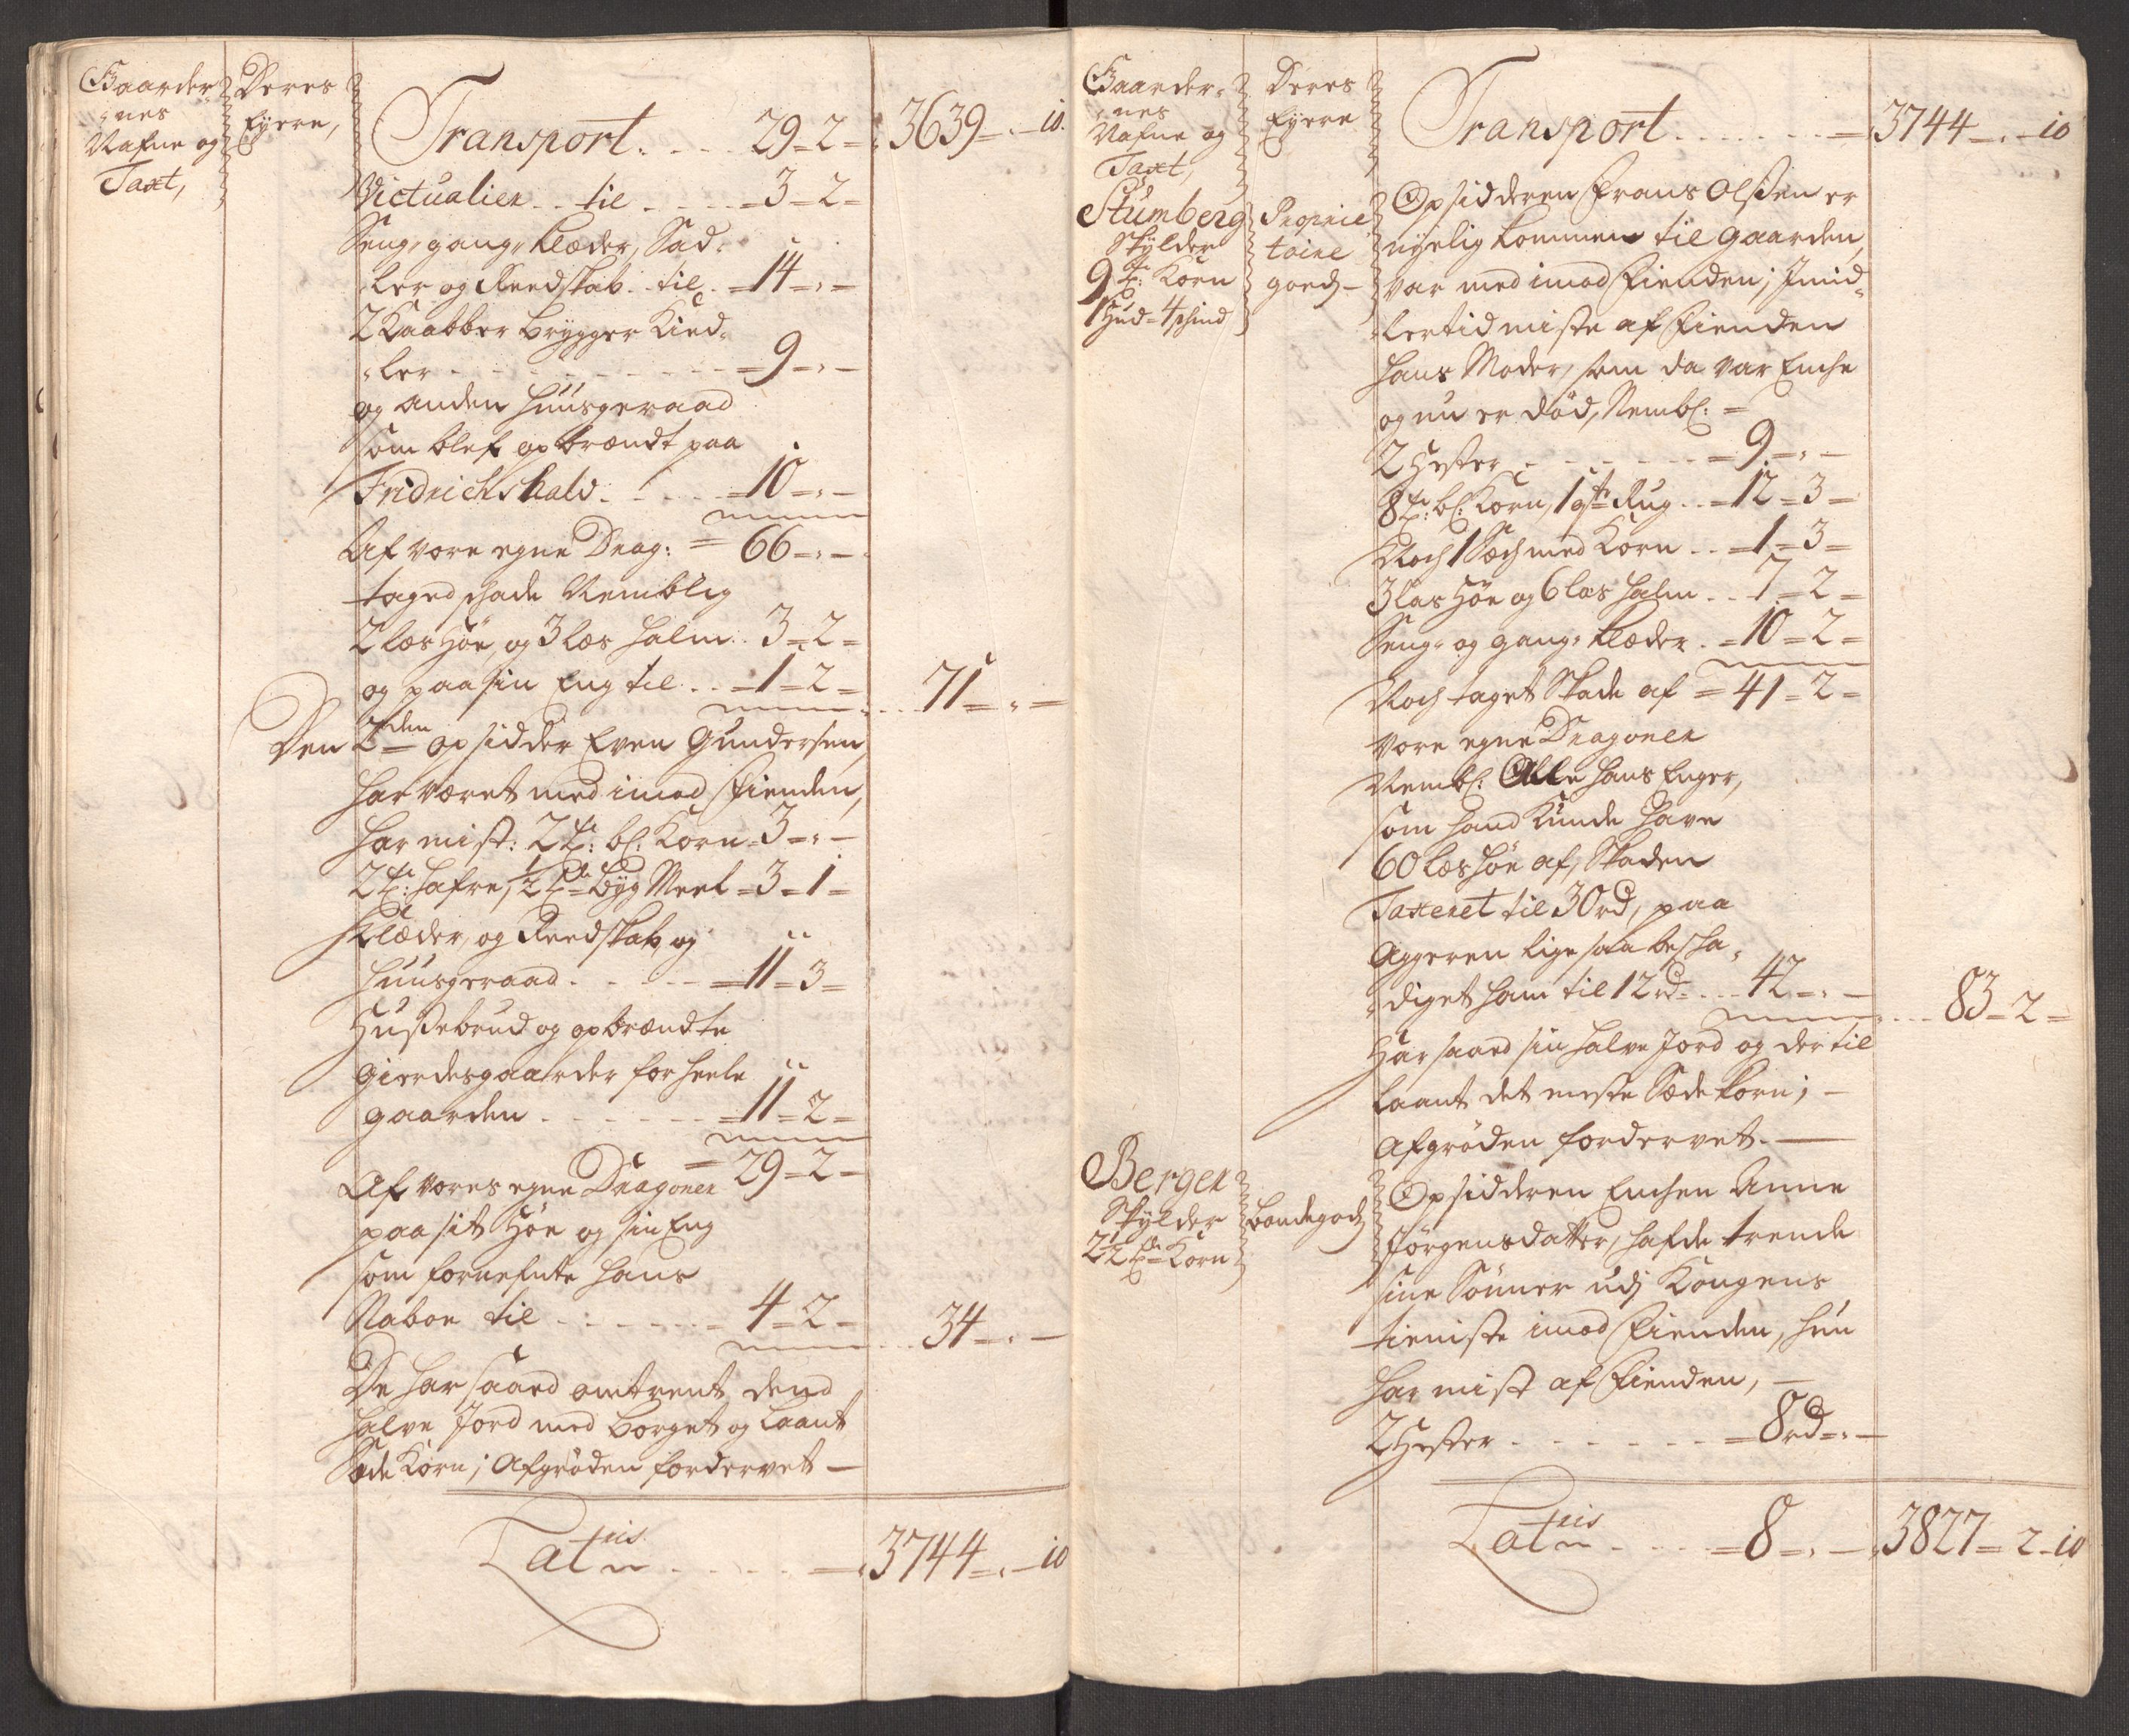 Gaarder-
nes
Nafne og
Taxt,
Deres
Eyere,
Transport . . . . 29 = 2 = 3639 - " - 10.
Victualier . . til . . . . = 3 = 2 =
Seng- gang- Klæder, Sad-
ler og Reedskab . . til . = 14 = " -
2 Kaabber brygger Kied-
ler . . . . . . . . . = 9 = " -
og anden huusgeraad
som blef opbrændt paa
Fridrichshald . . . . = 10 = " -
Af vore egne Drag: = 66 = " -
taged schade Nemblig
2 læs Høe, og 3 læs halm . 3 = 2 =
og paa sin Eng til . . . = 1 = 2 = . . . 71 = " -
Den 2den opsidder Even Gundersen,
har været med imod Fienden,
har mist: 2 T: bl: Korn = 3 = " -
2 T: hafre, 1/2 T: Byg Meel = 3 = 1 =
Klæder, og Reedskab og
huusgeraad . . . . . = 11 = 3 =
Hussebrud og opbrændte
gierdesgaarder for heele
gaarden . . . . . . = 11 = 2 =
Af vores egne Dragoner = 29 = 2 =
paa sit Høe og sin Eng
som fornefnte hans
Naboe til . . . . . . = 4 = 2 = . . . 34 = " -
De har saaed omtrent dend
halve Jord med borget og laant
Sæde Korn; Afgrøden fordervet -
Latris . . . . . = 3744 = " - 10
Gaarder-
nes
Nafne og
Taxt,
Deres
Eyere
Transport . . . . . . . = 3744 = " - 10
Stumberg
Skylder
9 T: Korn
1 Hud = 4 skind
Proprie-
taire
goeds -
Opsidderen Frans Olssen er
nyelig kommen til gaarden,
var med imod Fienden; Imid-
lertid miste af Fienden
hans Moder, som da var Enche
og nu er død, Nembl: =
2 Hester . . . . . . . = 9 = " -
8 T: bl: Korn, 1 qtr Rug . . = 12 = 3 =
Noch 1 Sech med Korn . . = 1 = 3 =
3 læs Høe og 6 læs halm . . 7 = 2 =
Seng- og gang- klæder . = 10 = 2 =
Noch taget Skade af = 41 = 2 =
vore egne Dragoner
Nembl: Alle hans Enger,
som hand kunde have
60 læs høe af, Skaden
Taxeret til 30 rd, paa
Aggeren lige saa bescha-
diget ham til 12 rd = . . . 42 = " - . . . 83 = 2 =
Har saaed sin halve Jord og der til
laant det meste Sædekorn; -
Afgrøden fordervet. -
Bergen
Skylder
2 1/2 T: Korn
Bondegods
Opsidderen Enchen Anne
Jørgensdatter, hafde trende
sine Sønner udj Kongens
tieniste imod Fienden, hun
har mist af Fienden, -
2 Hester . . . . . . . = 8 rd = " -
Latris . . . . = 8 = " - 3827 = 2 - 10